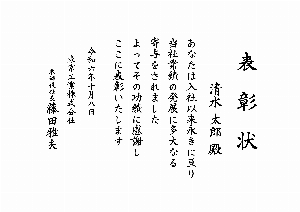 表彰状
清水 太郎 殿
あなたは入社以来永きに亘り
当社業績の発展に多大なる
寄与をされました
よってその功績に感謝し
ここに表彰いたします
令和六年十月八日
東京工業株式会社
代表取締役社長 藤田雅夫